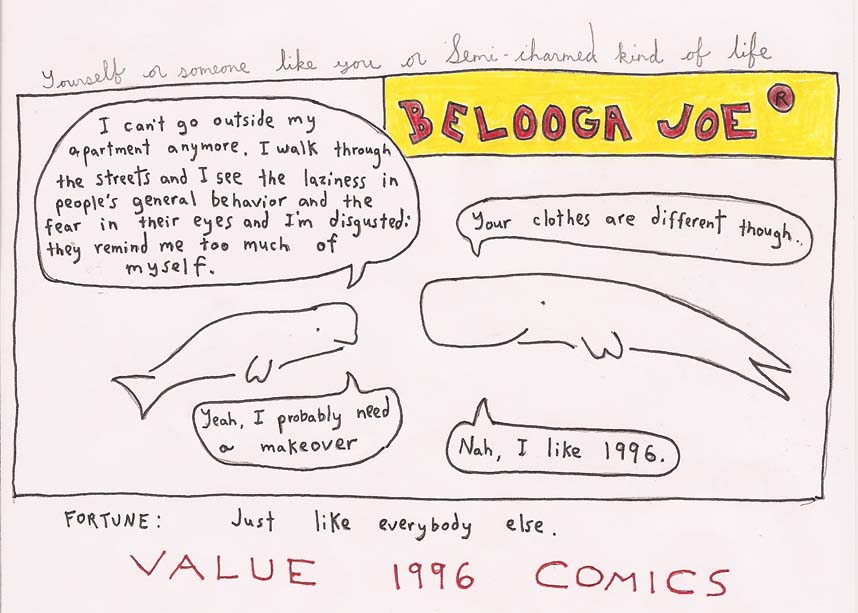 Yourself or someone like you or Semi-charmed kind of life
BELOOGA JOE ®
I can't go outside my
apartment anymore. I walk through
the streets and I see the laziness in
people's general behavior and the
fear in their eyes and I'm disgusted:
they remind me too much of
myself.
Your clothes are different though..
Yeah, I probably need
a makeover
Nah, I like 1996.
FORTUNE: Just like everybody else.
VALUE 1996 COMICS